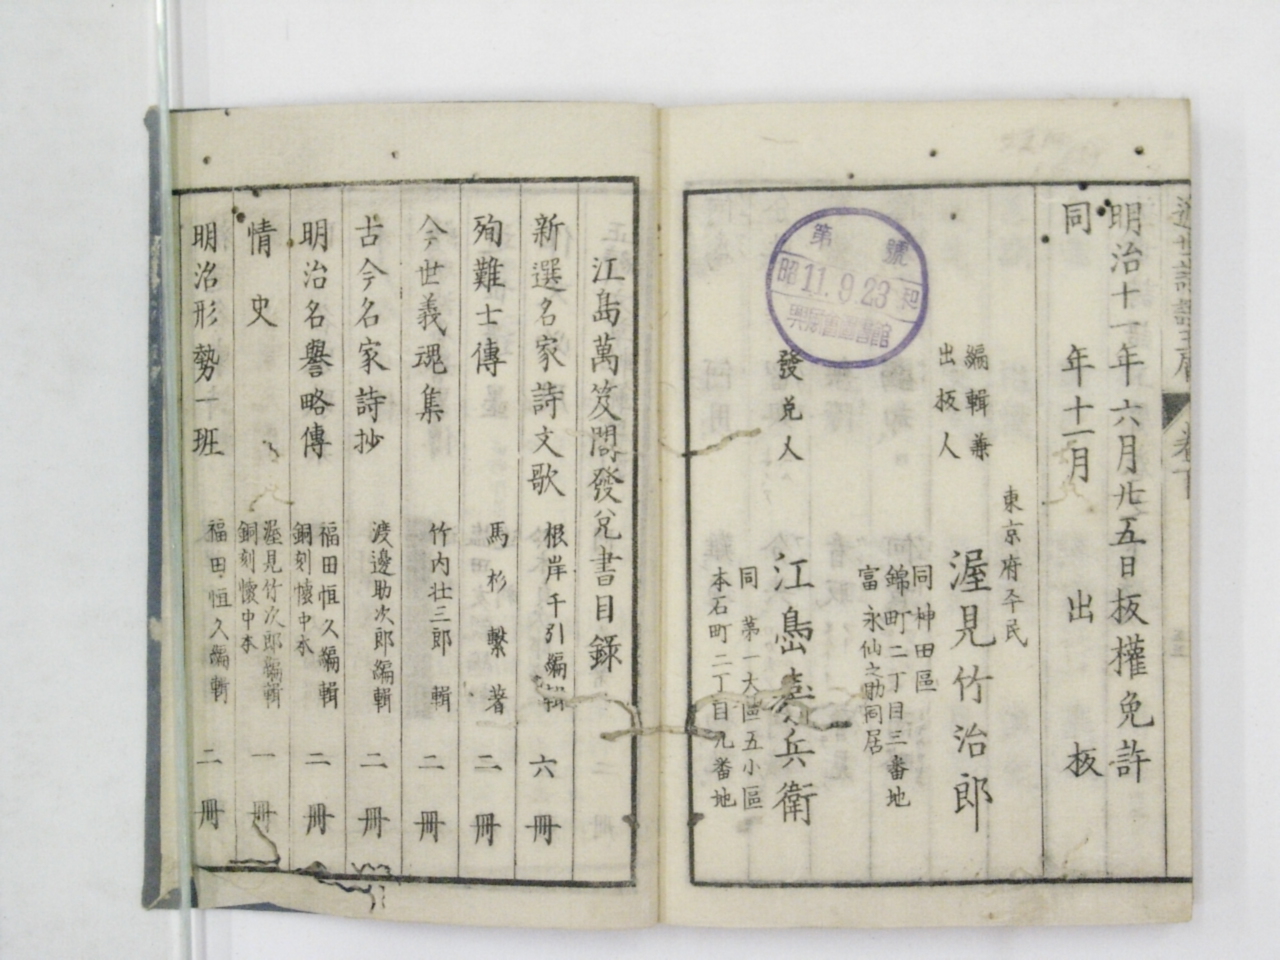 明治十一年六月廿五日板權免許
同年十一月出板
東京府平民
編輯兼
出板人
渥見竹治郎
同神田區
錦町二丁目三番地
富永仙之助同居
發兌人
江島嘉兵衛
同第一大區五小區
本石町二丁目九番地
第號
昭11.9.23和
卷下
江島萬笈閣發兌書目錄
新選名家詩文歌 根岸千引編輯 六冊
殉難士傳 馬杉繫著 二冊
今世義魂集 竹内壮三郎輯 二冊
古今名家詩抄 渡邊助次郎編輯 二冊
明治名譽略傳 福田恒久編輯 銅刻懐中本 二冊
情史 渥見竹次郎編輯 銅刻懐中本 一冊
明治形勢一班 福田恒久編輯 二冊